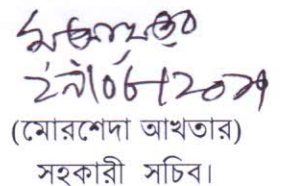 ২৭/০৮/২০২৩
(মোরশেদা আখতার)
সহকারী সচিব।